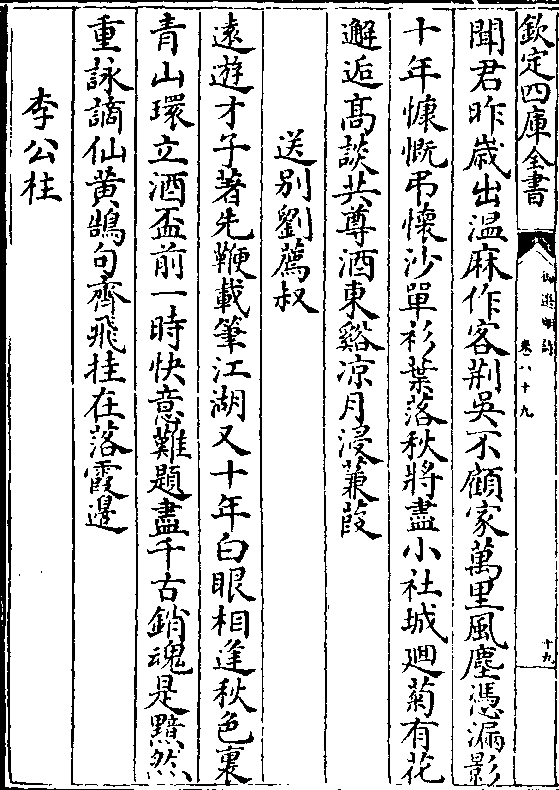 欽定四庫全書
御選明詩
卷八十九
十九
聞君昨歲出温麻作客荆吳不顧家萬里風塵憑漏影
十年慷慨弔懷沙單衫葉落秋將盡小社城廻菊有花
邂逅髙談共尊酒東谿凉月浸蒹葭
送别劉薦叔
逺遊才子著先鞭載筆江湖又十年白眼相逢秋色裏
青山環立酒盃前一時快意難題盡千古銷魂是黯然
重詠謫仙黄鵠句齊飛挂在落霞邊
李公柱